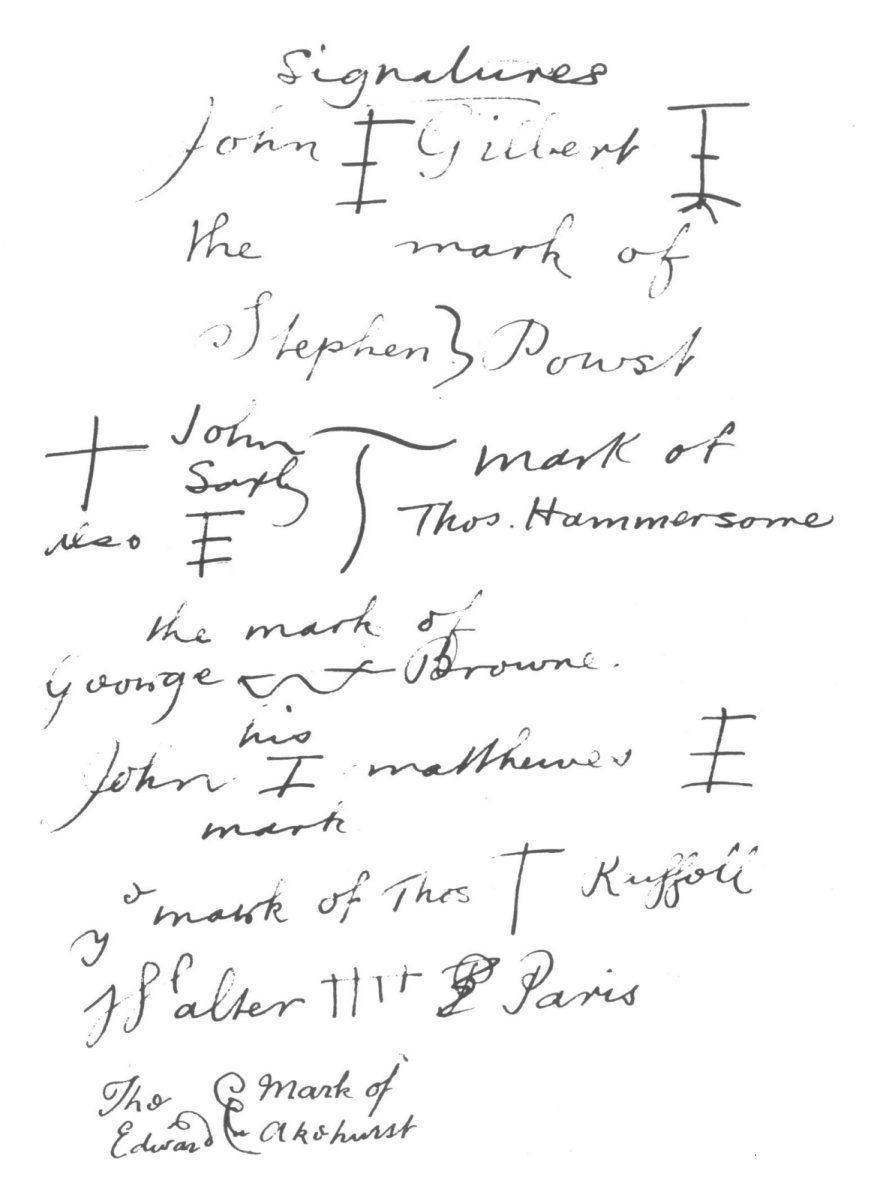 Signatures
John Gilbert
the mark of
Stephen Powst
John mark of
Saxby Thos. Hammersome
also
the mark of
George Browne.
his
John matthewes
mark
ye mark of Thos Kuffoll
Walter Paris
The Mark of
Edward Akehurst